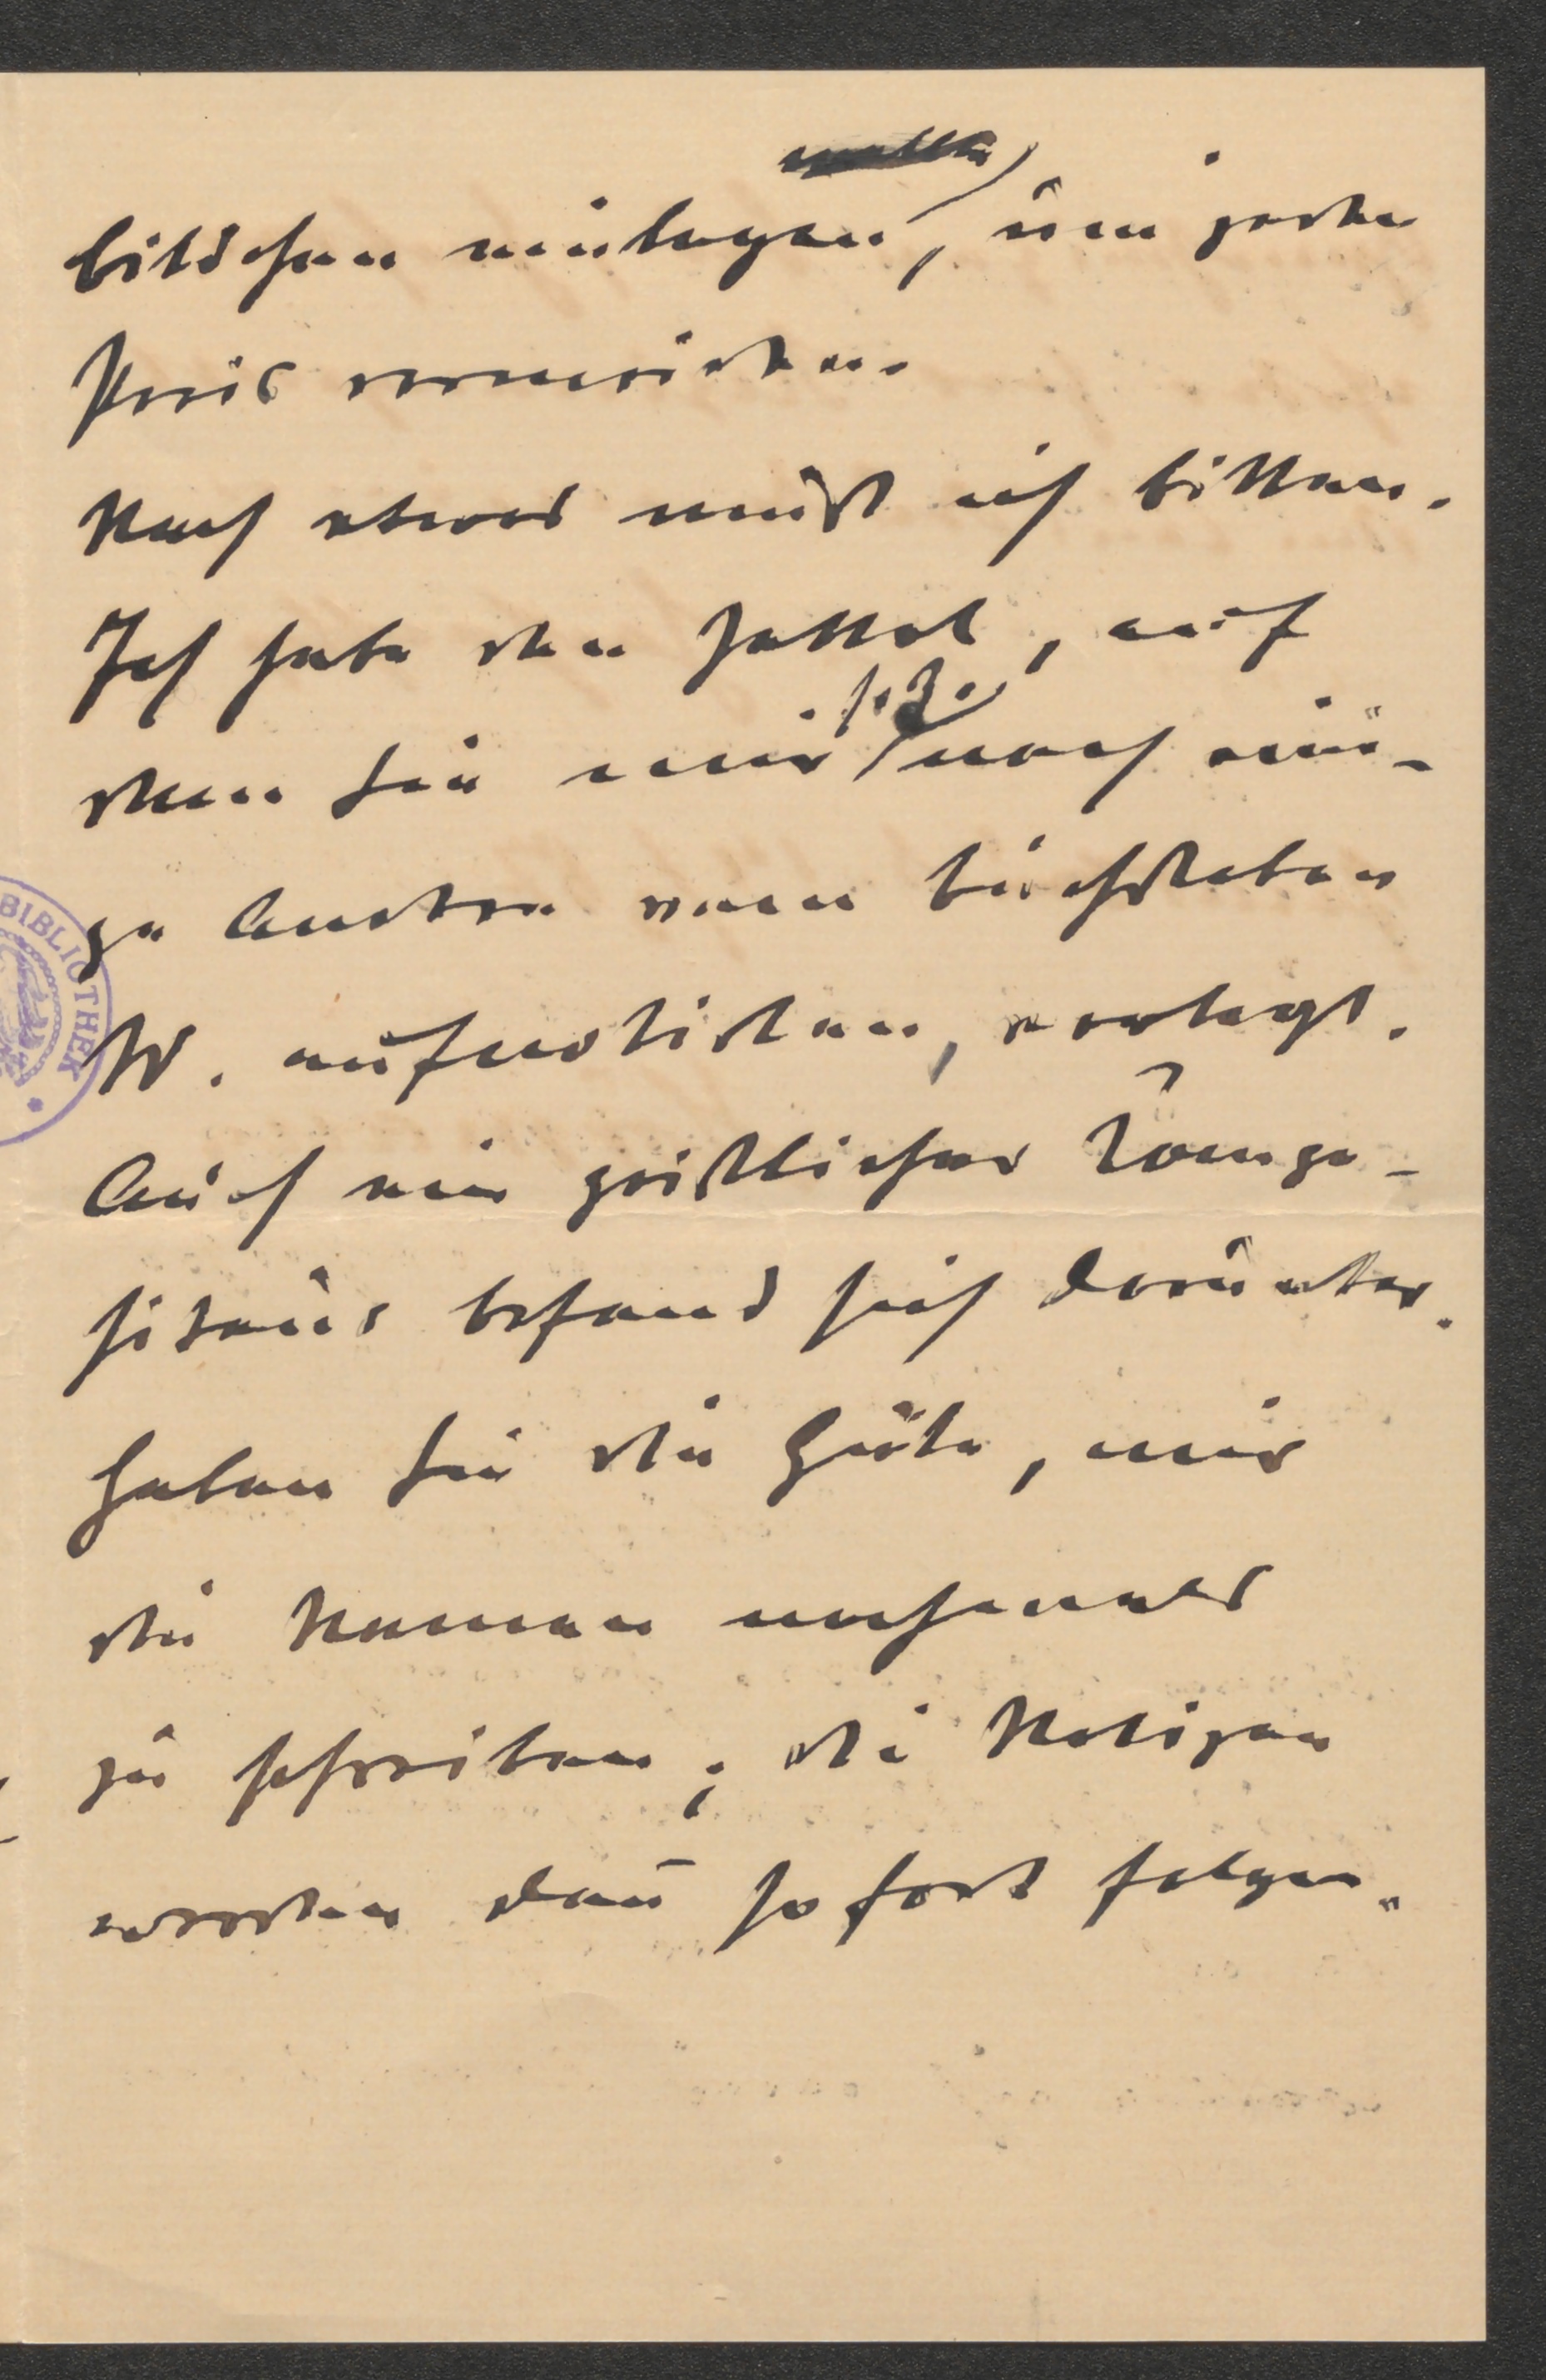 bildchen einlegen, um jeden
Preis vermeiden.
Noch etwas muß ich bitten.
Ich habe den Zettel, auf
dem Sie mir s. Z. noch eini-
ge Andere vom Buchstaben
W. aufnotirten, verlegt.
Auch ein geistlicher Compo-
siteur befand sich darunter.
Haben Sie die Güte, mir
die Namen nochmals
zu schreiben; die Notizen
werden dañ sofort folgen.
BIBLIOTHEK